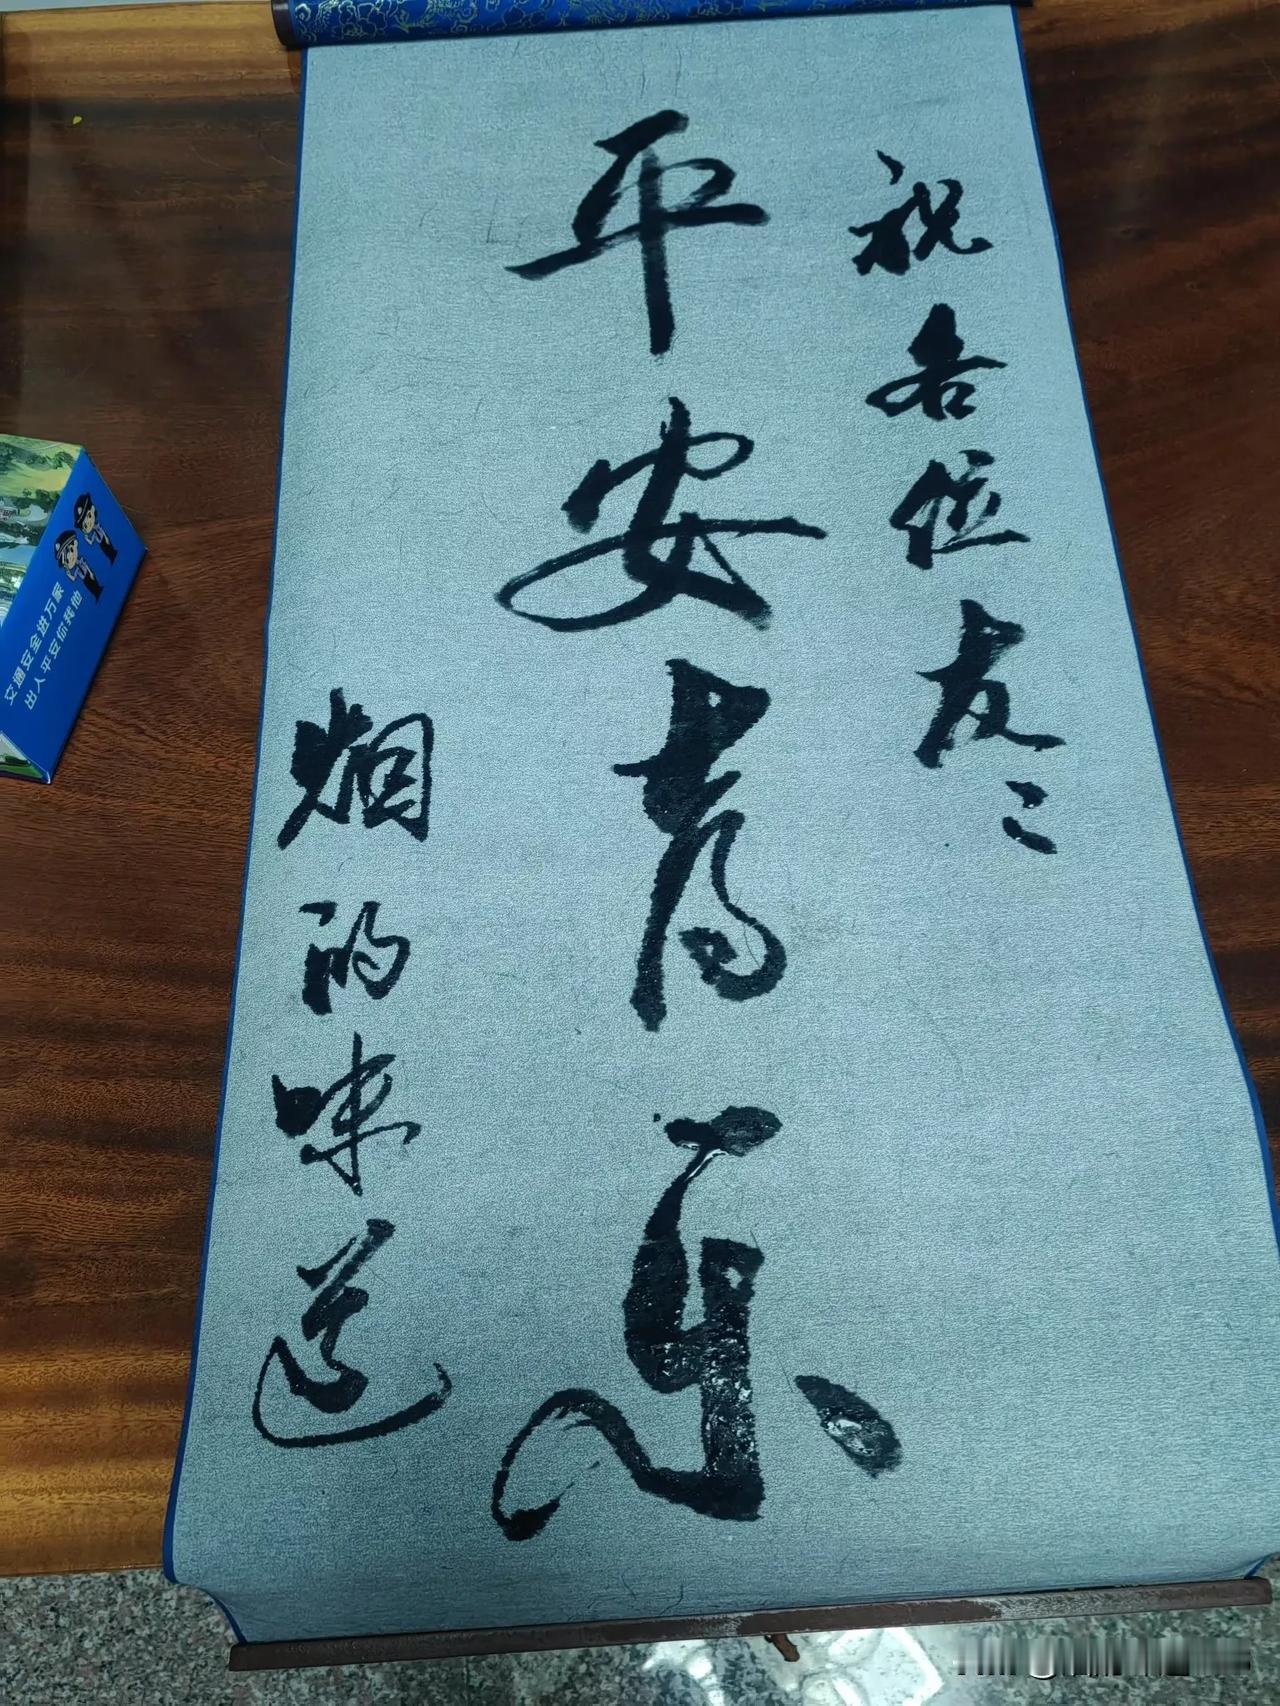 祝各位友〻
平安喜乐
烟的味道
交通安全进万家
出入平安你我他